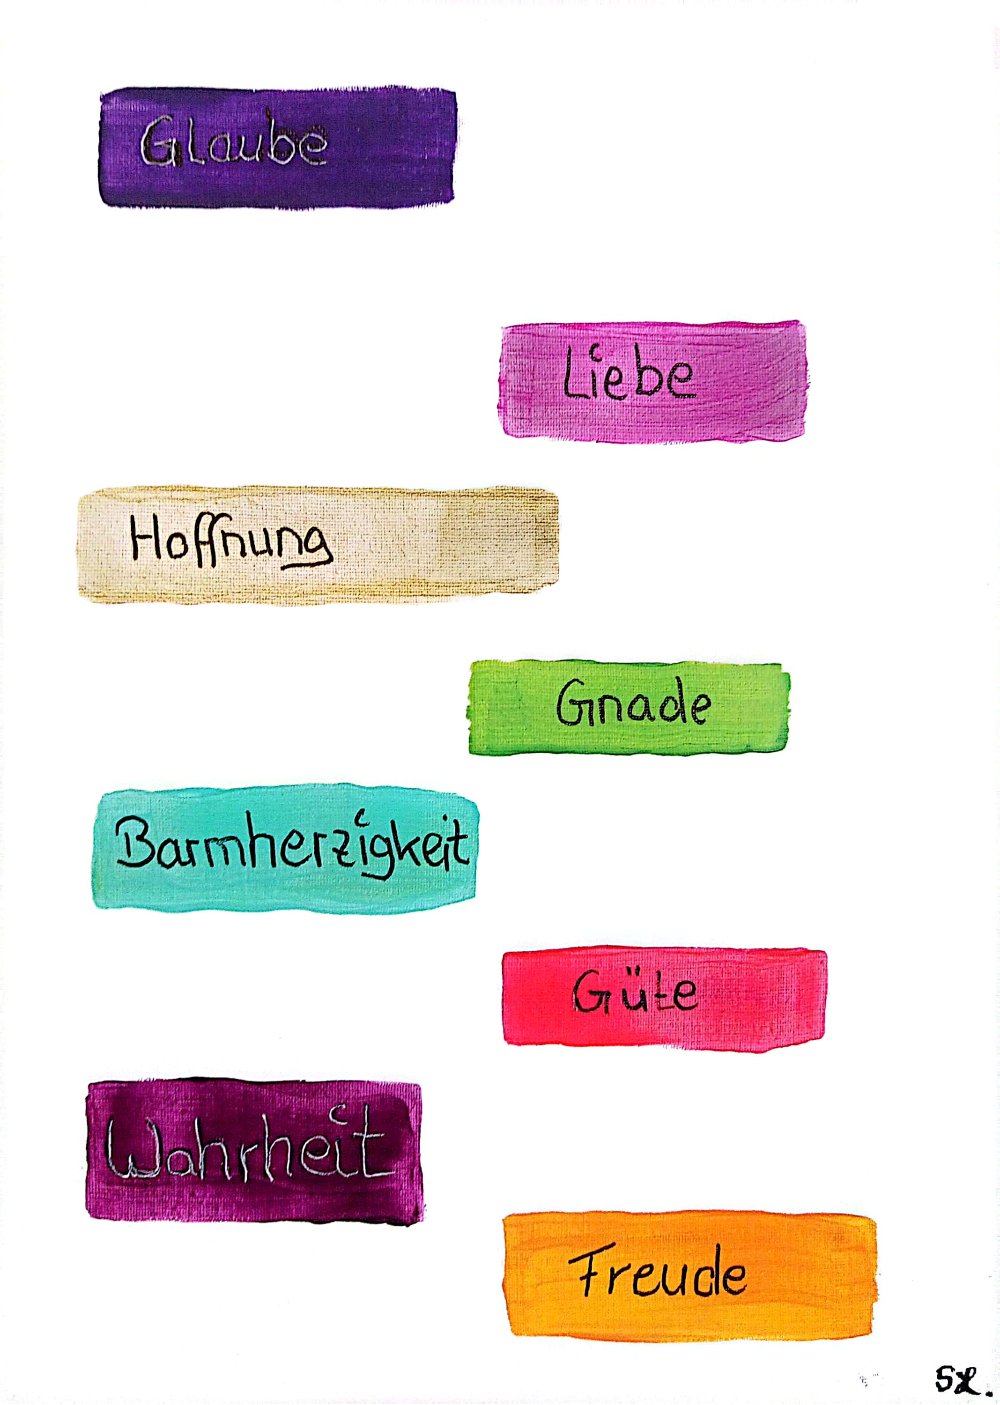 Glaube
Liebe
Hoffnung
Gnade
Barmherzigkeit
Güte
Wahrheit
Freude